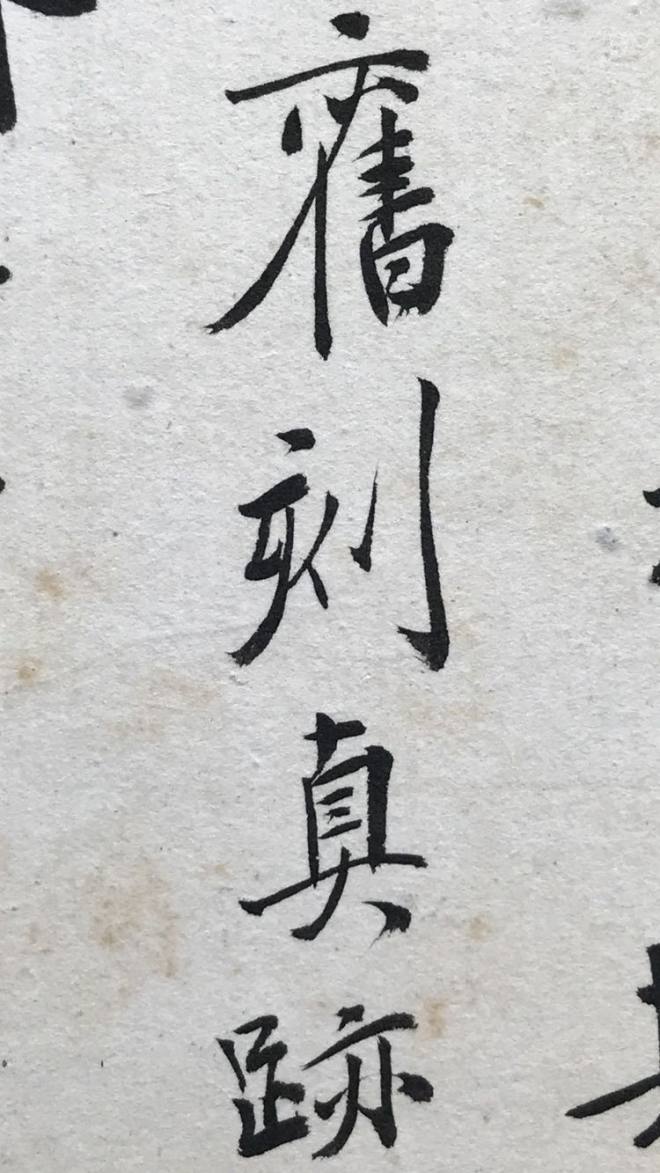 舊刻真跡